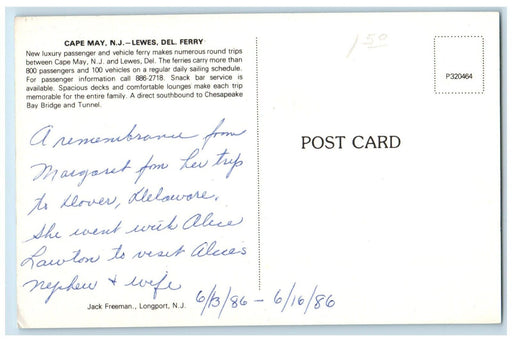 CAPE MAY, N.J.—LEWES, DEL. FERRY
New luxury passenger and vehicle ferry makes numerous round trips
between Cape May, N.J. and Lewes, Del. The ferries carry more than
800 passengers and 100 vehicles on a regular daily sailing schedule.
For passenger information call 886-2718. Snack bar service is
available. Spacious decks and comfortable lounges make each trip
memorable for the entire family. A direct southbound to Chesapeake
Bay Bridge and Tunnel.
A remembrance from
Margaret from her trip
to Dover, Delaware.
She went with Alice
Lawton to visit Alice's
nephew + wife
Jack Freeman., Longport, N.J.
6/13/86 - 6/16/86
1 50
P320464
POST CARD